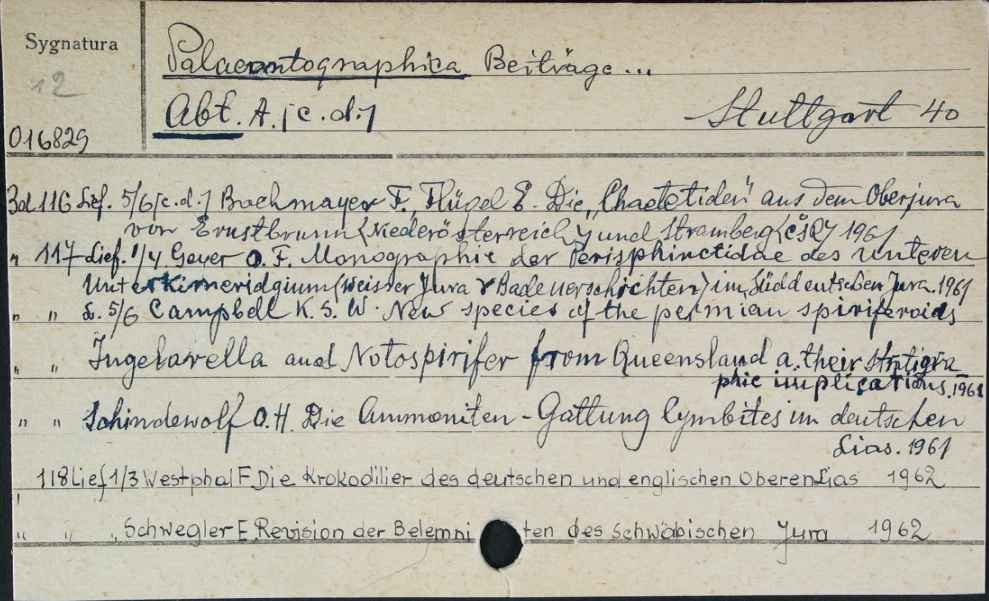 Sygnatura
12
016829
Palaeontographica Beiträge...
Abt. A. /c.d./
Stuttgart 40
Bd 116 Lief. 5/6 /c.d./ Bachmayer F. Flügel E. Die „Chaetetiden" aus dem Oberjura
von Ernstbrunn (Niederösterreich) und Stramberg (ČSR) 1961
" 117 Lief. 1/4 Geyer O. F. Monographie der Perisphinctidae des unteren
Unterkimeridgium (Weisser Jura γ Badenerschichten) im Süddeutschen Jura. 1961
" " L. 5/6 Campbell K. S. W. New species of the permian spiriferoids
" " Ingelarella and Notospirifer from Queensland a. their stratigra
phic implications. 1961
" " Schindewolf O. H. Die Ammoniten-Gattung Cymbites im deutschen
Lias. 1961
" 118 Lief 1/3 Westphal F. Die Krokodilier des deutschen und englischen Oberen Lias 1962
" " " Schwegler E. Revision der Belemniten des Schwäbischen Jura 1962